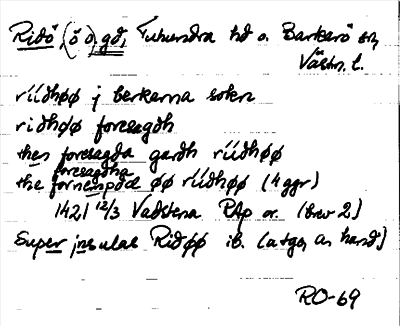 Ridö, (ö o) gd, Tuhundra hd o. Barkarö sn,
Västm. l.
ríídhøø j berkarna sokn
ridhøø foresagdh
then foresagda gardh ríídhøø
foresagdha
the fornenspod øø ríídhøø (4 ggr)
1421 12/3 Vadstena RAp or. (brev 2)
Super insulas Ridøø ib. (atgo, an. hand)
RO-69